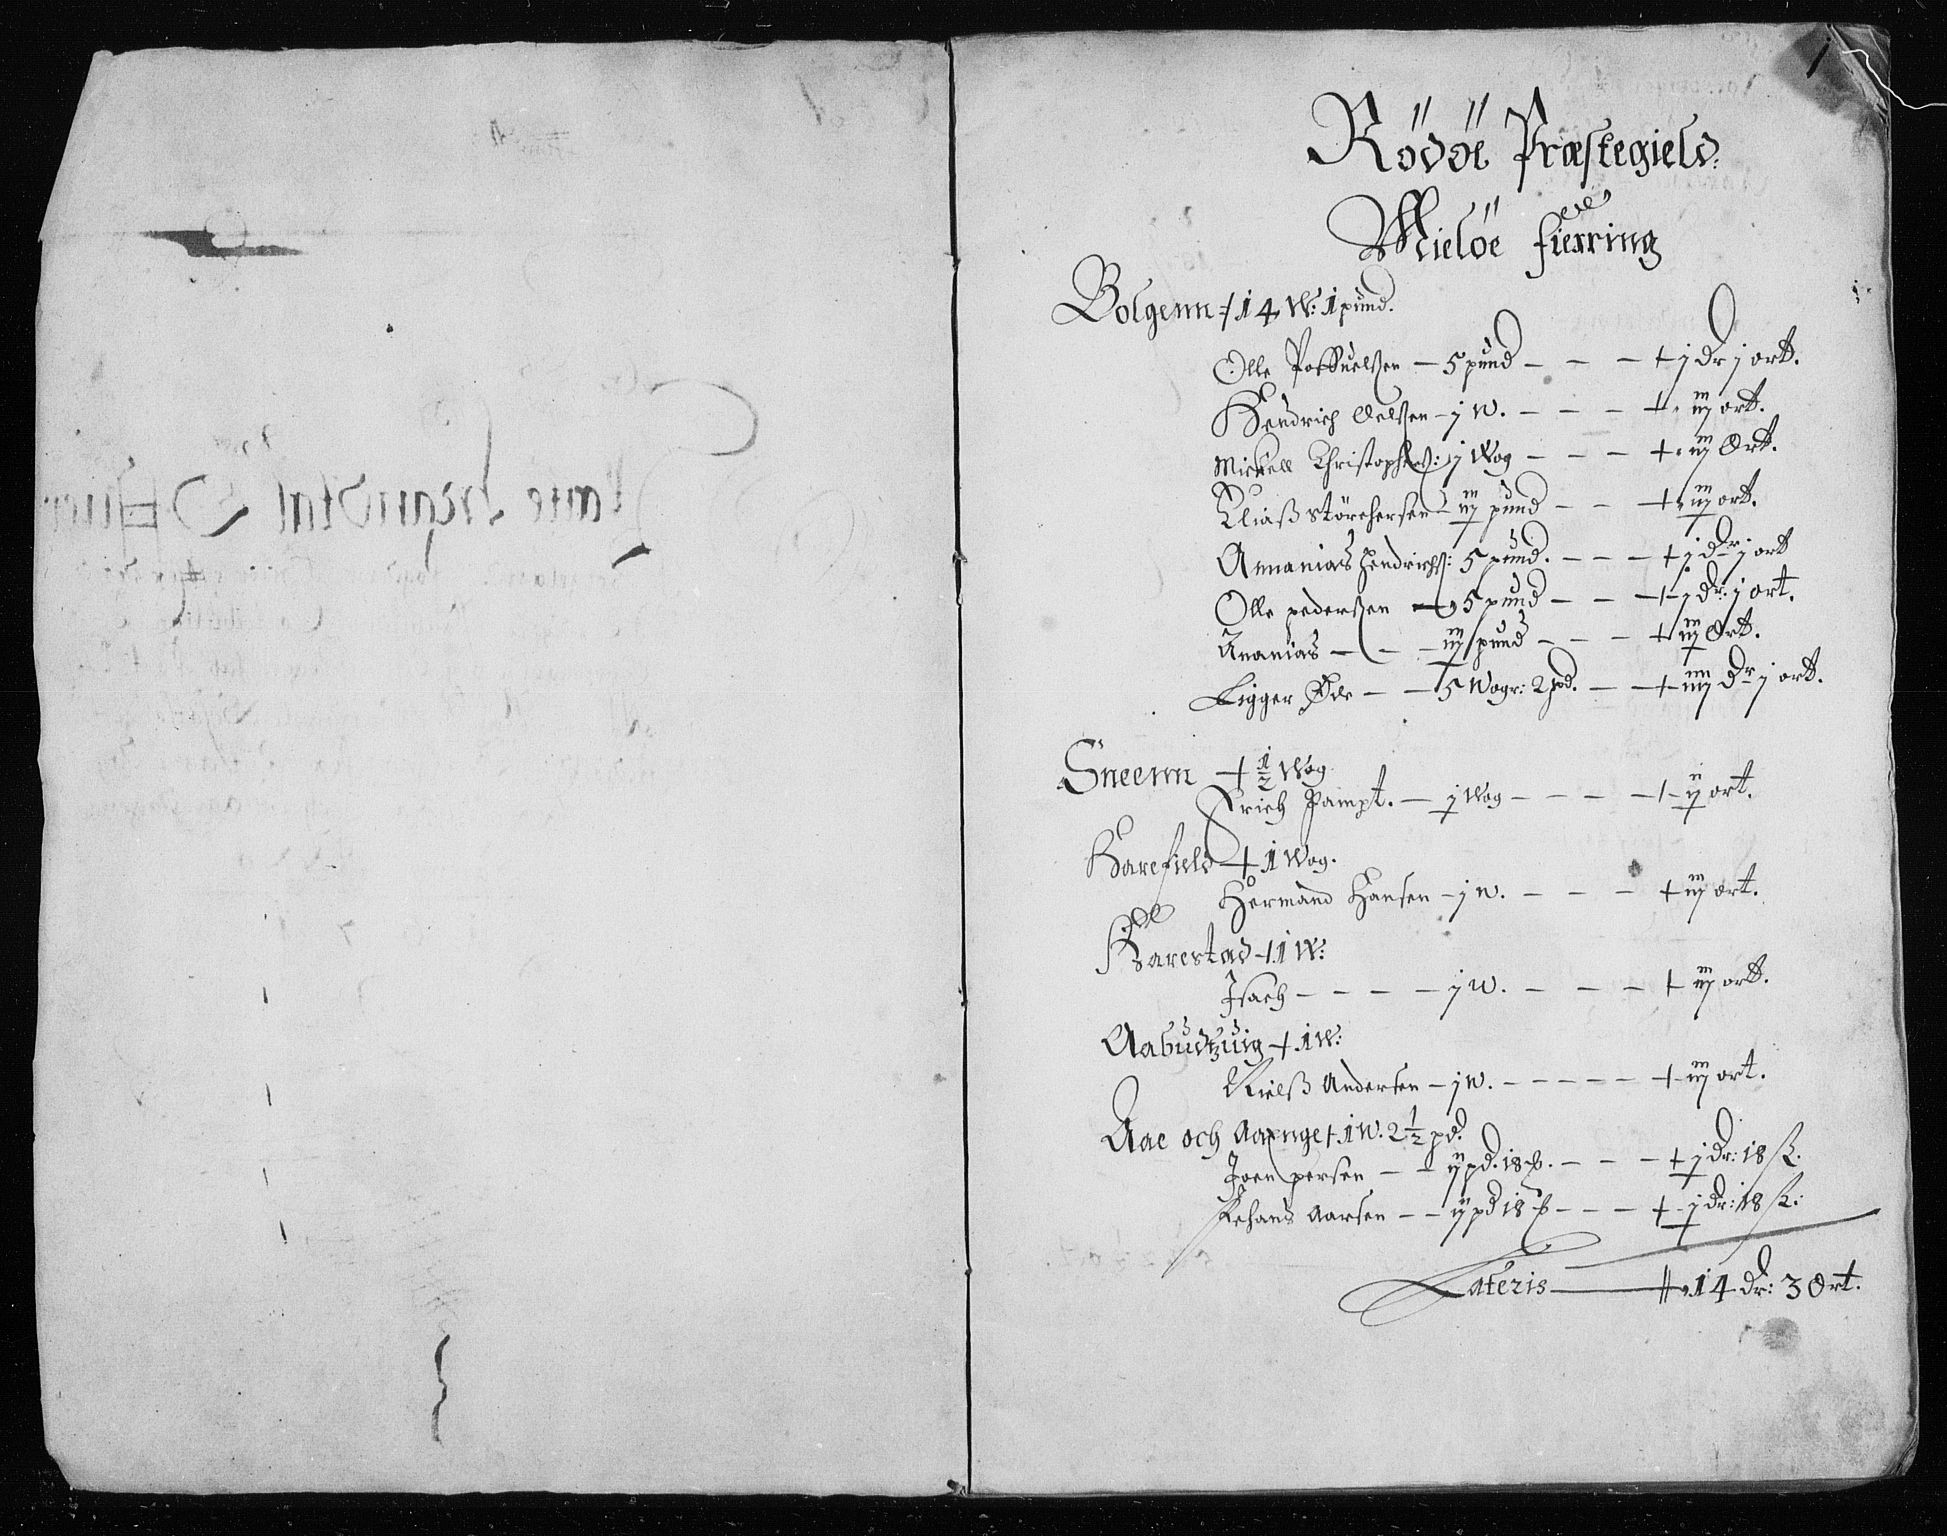 1
Rödöe Præstegield:
Mieløe fierring
Bolgenn + 14 W: 1 pund.
Olle Poffuelßen — 5 pund — — — + j dr j ort.
Hendrich Oelßen — j W. — — — + iij ort.
Mickell Christophers: j Wog — — — + iij Ort.
Eliaß störchersen — iij pund — — + iij ort.
Annanias Hendrichß: 5 pund. — — — + j dr j ort
Olle pederßen — 5 pund — — + j dr: j ort.
Ananias — — — iij pund — — — + iij Ort.
Ligger Øde — — 5 Wogr: 2 pd. — — + iiij dr j ort.
Sneenn + 1/2 Wog
Erich Pampt. — j Wog — — — — + ij ort.
Harefield + 1 Wog.
Hermand Hansen — j W. — — — + iij ort.
Karestad + 1 W:
Isach — — — — j W. — — — + iij ort.
Aabudtzuig + 1 W:
Nielß Andersen — j W. — — — — — + iij ort.
Aae och Aaenget + 1 W. 2 1/2 pd.
Joen persen — — ij pd. 18 ℔. — — — + j dr: 18 ß.
Johans Aarsen — — ij pd 18 ℔ — — — + j dr: 18 ß:
Lateris — 14 dr: 3 Ort.